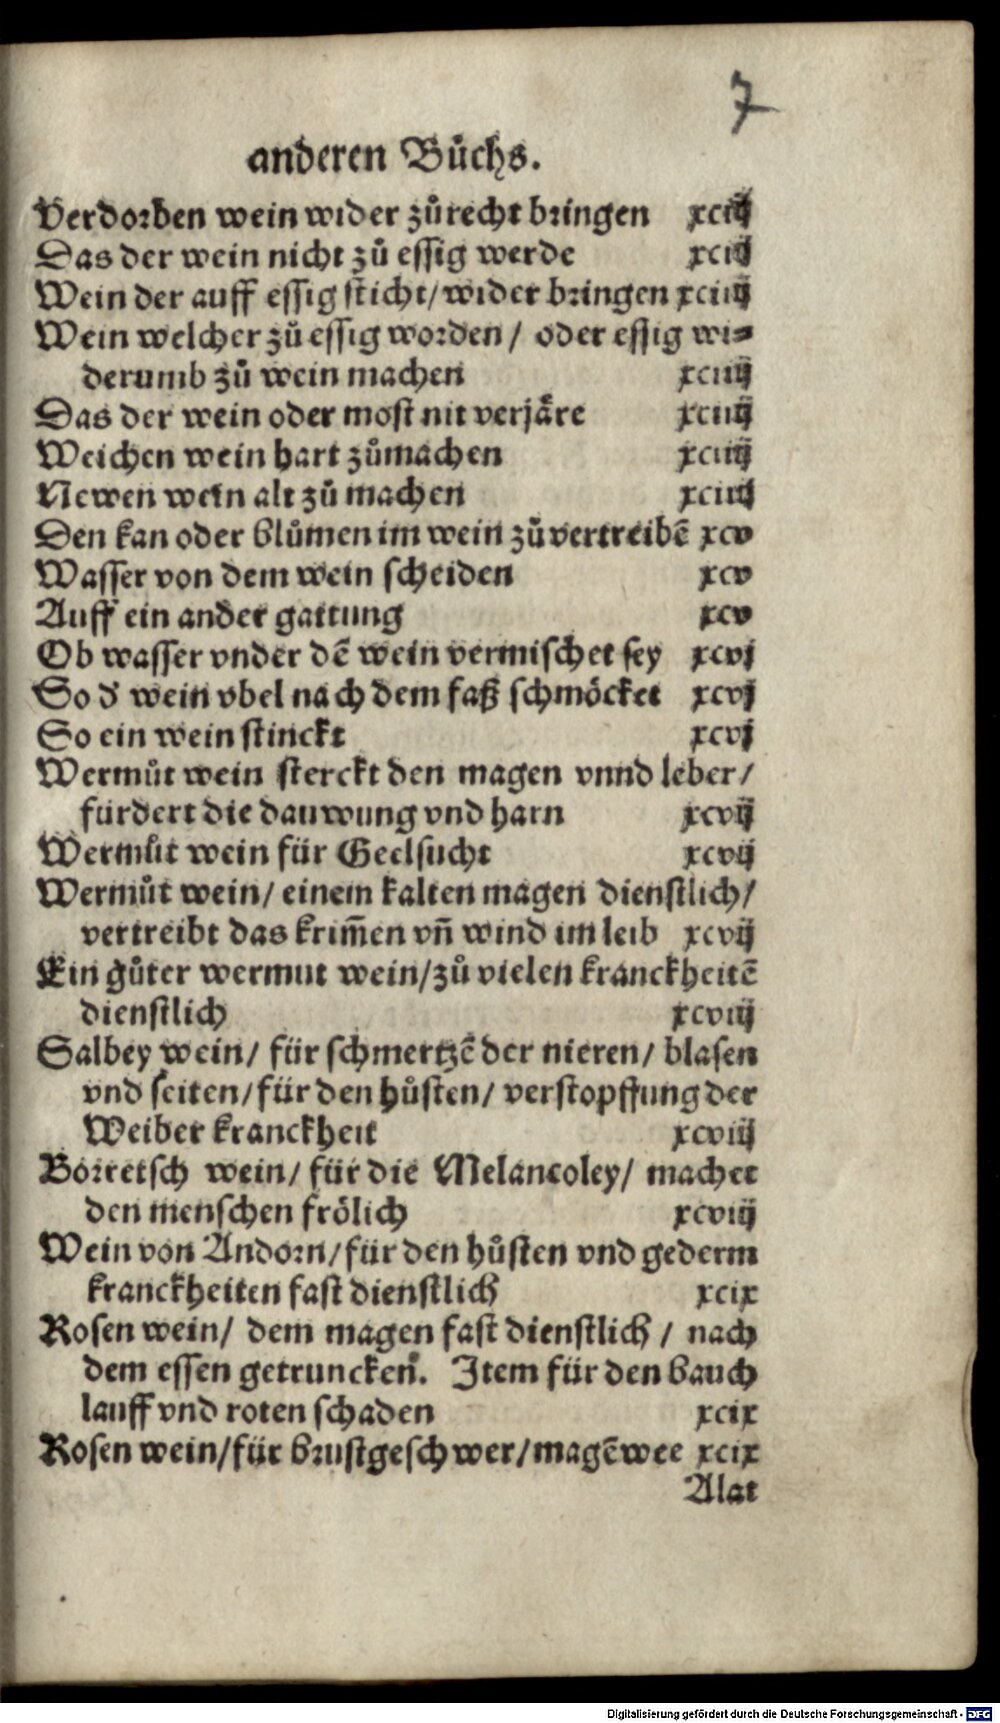 7
anderen Bůchs.
Verdorben wein wider zů recht bringen xciij
Das der wein nicht zů essig werde xciij
Wein der auff essig sticht/wider bringen xciiij
Wein welcher zů essig worden/ oder essig wi⸗
derumb zů wein machen xciiij
Das der wein oder most nit verjåre xciiij
Weichen wein hart zůmachen xciiij
Newen wein alt zů machen xciiij
Den kan oder blůmen im wein zů vertreibẽ xcv
Wasser von dem wein scheiden xcv
Auff ein ander gattung xcv
Ob wasser vnder dẽ wein vermischet sey xcvj
So d' wein vbel nach dem faß schmöcket xcvj
So ein wein stinckt xcvj
Wermůt wein sterckt den magen vnnd leber/
fürdert die dauwung vnd harn xcvij
Wermůt wein für Geelsucht xcvij
Wermůt wein/ einem kalten magen dienstlich/
vertreibt das krim̃en vñ wind im leib xcvij
Ein gůter wermut wein/zů vielen kranckheitẽ
dienstlich xcviij
Salbey wein/ für schmertzẽ der nieren/ blasen
vnd seiten/für den hůsten/ verstopffung der
Weiber kranckheit xcviij
Borretsch wein/ für die Melancoley/ machet
den menschen frölich xcviij
Wein von Andorn/für den hůsten vnd gederm
kranckheiten fast dienstlich xcix
Rosen wein/ dem magen fast dienstlich / nach
dem essen getruncken. Item für den bauch
lauff vnd roten schaden xcix
Rosen wein/für brustgeschwer/magẽwee xcix
Alat
Digitalisierung gefördert durch die Deutsche Forschungsgemeinschaft - DFG